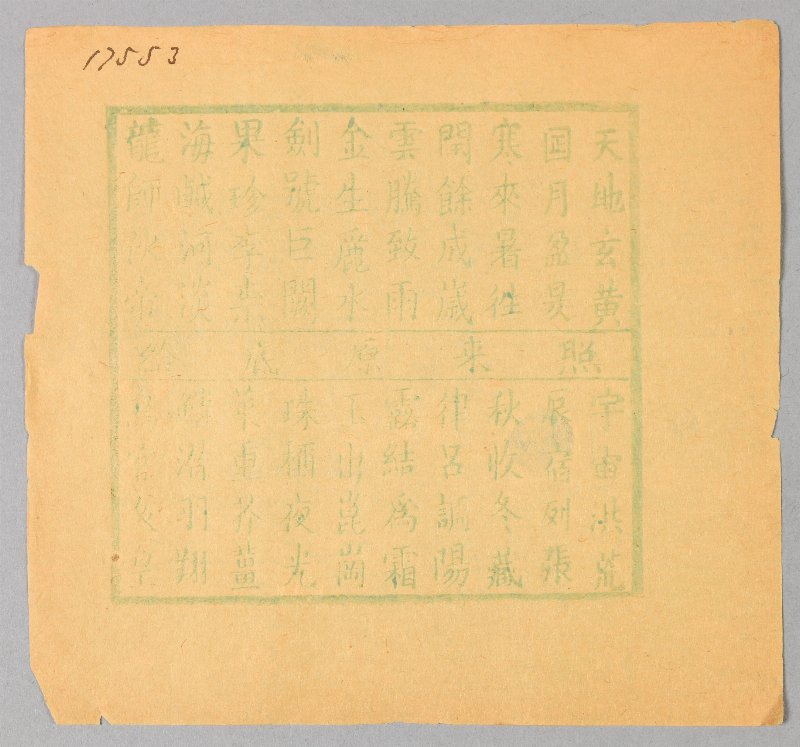 17553
天地玄黃
囸月盈昃
寒來暑徃
閏餘成歲
雲騰致雨
金生麗水
劍號巨闕
果珍李柰
海鹹河淡
龍師火帝
照来原底給
宇宙洪荒
辰宿列張
秋收冬藏
律呂調陽
露結為霜
玉出崑崗
珠称夜光
菜重芥薑
鱗潛羽翔
鳥官人皇